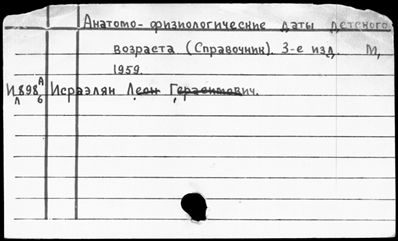 Анатомо-физиологические даты детского
возраста (Справочник). 3-е изд. М,
1959.
И898 А Исраэлян Леон Герасимович.
Л 6